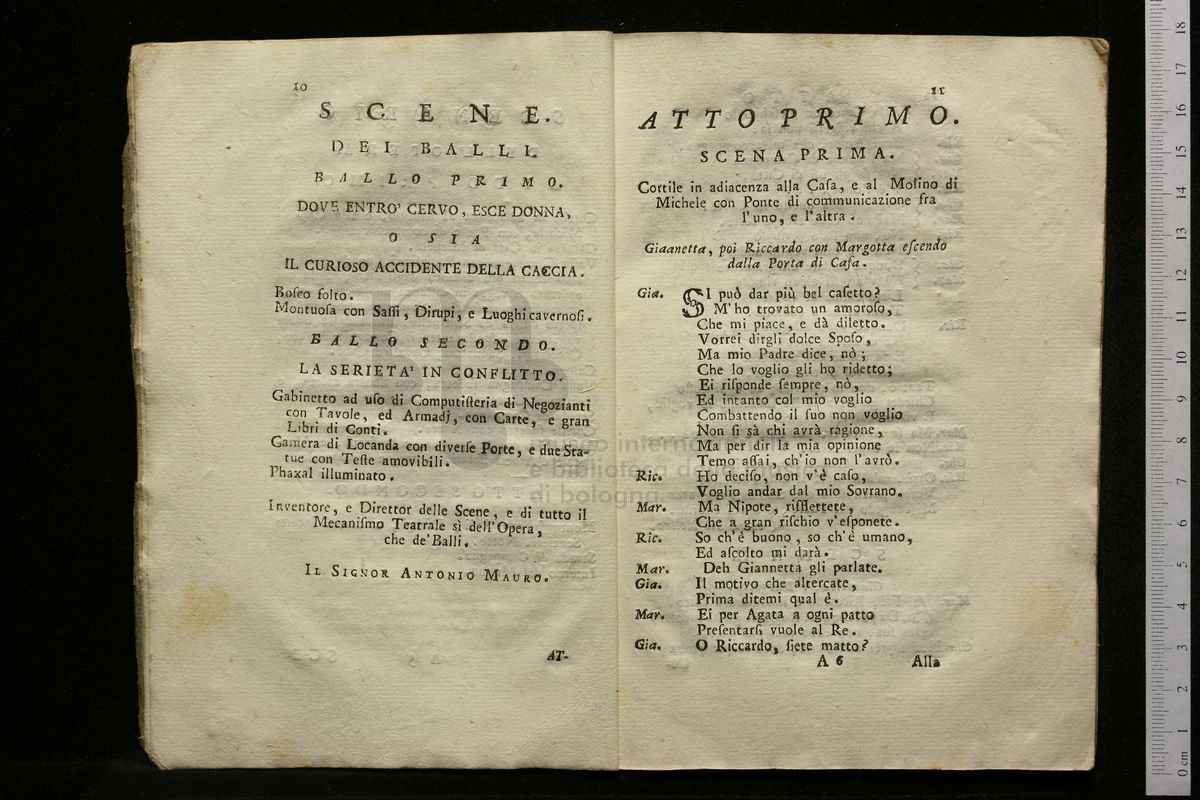 10
SCENE.
DEI BALLI.
BALLO PRIMO.
DOVE ENTRO' CERVO, ESCE DONNA,
O SIA
IL CURIOSO ACCIDENTE DELLA CACCIA.
Bosco folto.
Montuosa con Sassi, Dirupi, e Luoghi cavernosi.
BALLO SECONDO.
LA SERIETA' IN CONFLITTO.
Gabinetto ad uso di Computisteria di Negozianti
con Tavole, ed Armadj, con Carte, e gran
Libri di Conti.
Camera di Locanda con diverse Porte, e due Sta-
tue con Teste amovibili.
Phaxal illuminato.
Inventore, e Director delle Scene, e di tutto il
Mecanismo Teatrale sì dell'Opera,
che de' Balli.
IL SIGNOR ANTONIO MAURO.
AT-
11
ATTO PRIMO.
SCENA PRIMA.
Cortile in adiacenza alla Casa, e al Molino di
Michele con Ponte di communicazione fra
l'uno, e l'altra.
Giaanetta, poi Riccardo con Margotta escendo
dalla Porta di Casa.
Gia. SI può dar più bel casetto?
M'ho trovato un amoroso,
Che mi piace, e dà diletto.
Vorrei dirgli dolce Sposo,
Ma mio Padre dice, nò;
Che lo voglio gli ho ridetto;
Ei risponde sempre, nò,
Ed intanto col mio voglio
Combattendo il suo non voglio
Non si sà chi avrà ragione,
Ma per dir la mia opinione
Temo assai, ch'io non l'avrò.
Ric. Ho deciso, non v'è caso,
Voglio andar dal mio Sovrano.
Mar. Ma Nipote, rifflettete,
Che a gran rischio v'esponete.
Ric. So ch'è buono, so ch'è umano,
Ed ascolto mi darà.
Mar. Deh Giannetta gli parlate.
Gia. Il motivo che altercate,
Prima ditemi qual è.
Mar. Ei per Agata a ogni patto
Presentarsi vuole al Re.
Gia. O Riccardo, siete matto?
A 6 Alla
0 cm 1 2 3 4 5 6 7 8 9 10 11 12 13 14 15 16 17 18